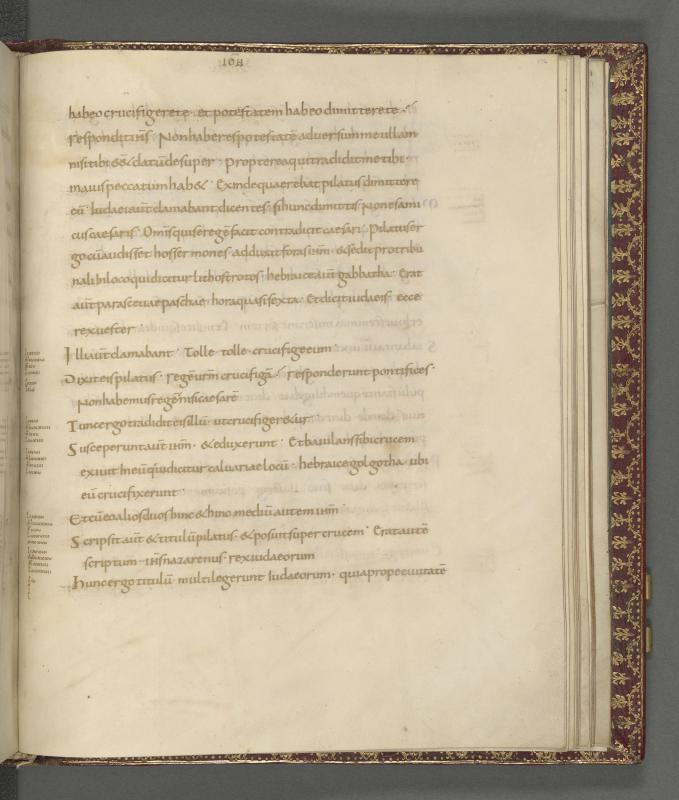 IOH
habeo crucifigere te · et potestatem habeo dimittere te ·
Respondit ihs · Non haberes potestatē adversum me ullam
nisi tibi eēt datū desuper · propterea qui tradidit me tibi ·
maius peccatum habet · Exinde quaerebat pilatus dimittere
eū · Iudaei aūt clamabant dicentes · si hunc dimittis non es ami
cus caesaris · Omīs qui se regē facit contradicit caesari · Pilatus er
go cū audisset hos sermones adduxit foras ihm · & sedit pro tribu
nali in loco qui dicitur lithostrotos · hebraice aūt gabbatha · Erat
aūt parasceuae paschae · hora quasi sexta · Et dicit iudaeis · ecce
rex uester ·
Illi aūt clamabant · Tolle · tolle · crucifige eum ·
Dixit eis pilatus · regē urm crucifigā · responderunt pontifices ·
Non habemus regē nisi caesarē
Tunc ergo tradidit eis illū · ut crucifigeretur ·
Susceperunt aūt ihm · & eduxerunt · Et baiulans sibi crucem
exiuit in eū qui dicitur caluariae locū · hebraice golgotha · ubi
eū crucifixerunt ·
Et cū eo alios duos hinc & hinc mediū autem ihm ·
Scripsit aūt & titulū pilatus · & posuit super crucem · Erat autē
scriptum · ihs nazarenus · rex iudaeorum
Hunc ergo titulū · multi legerunt Iudaeorum · quia prope ciuitatē